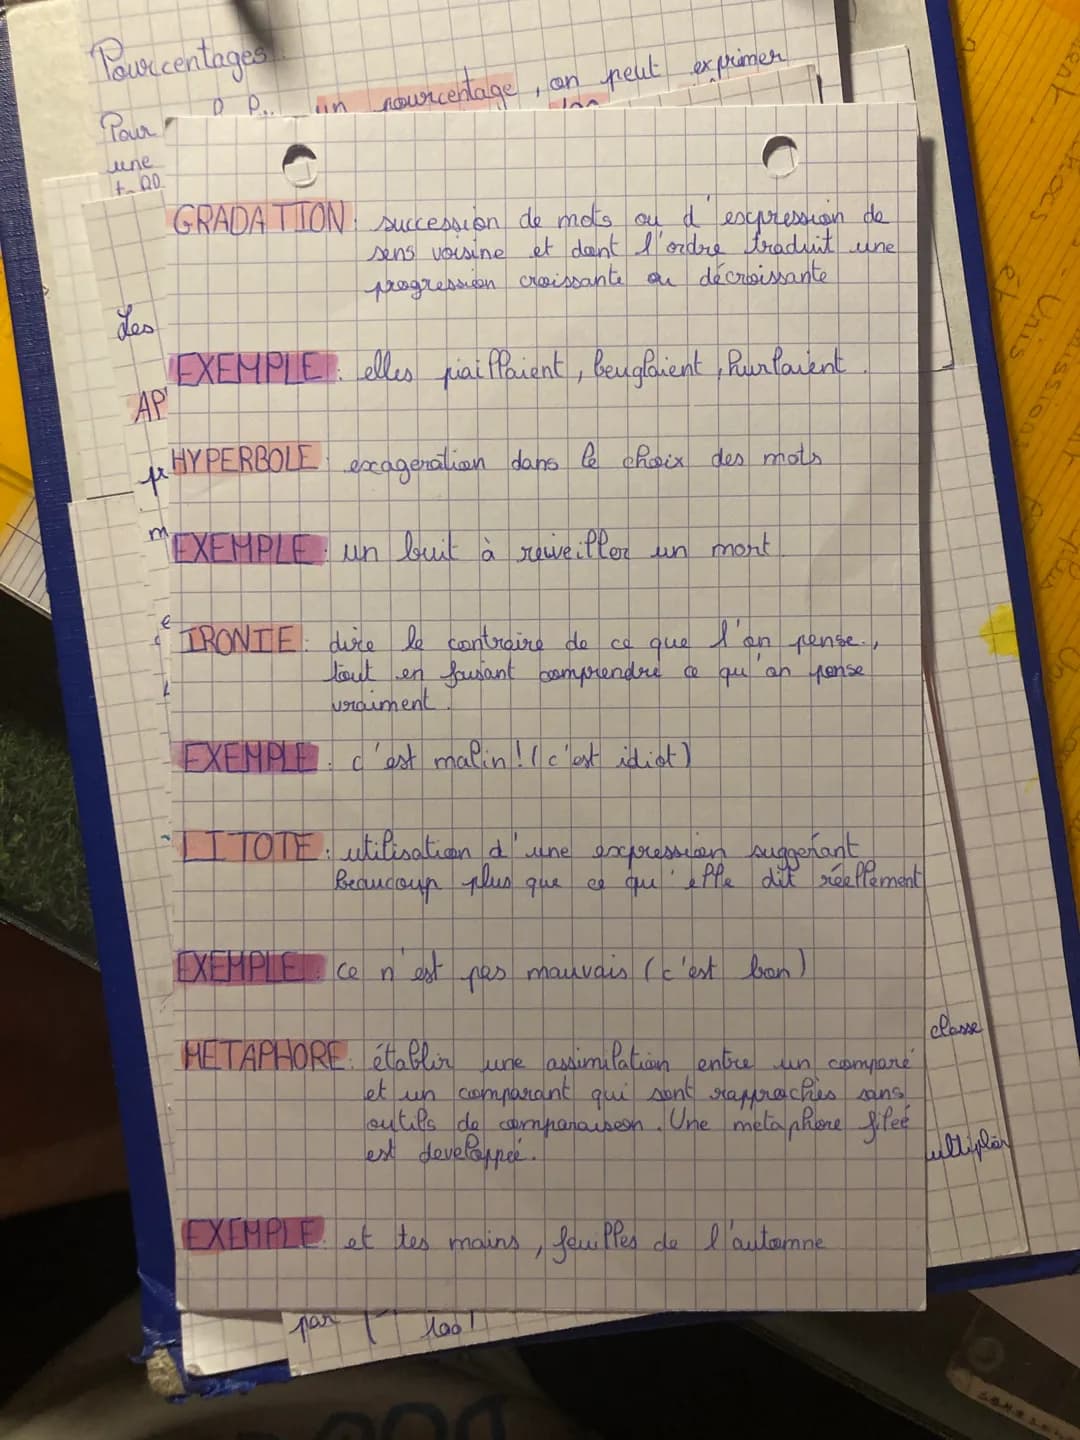 Pourcentages
un pourcentage, on peut exprimer
Pour
une
GRADATION: succession de mots ou d'expression de
sens voisine et dont l'ordre traduit une
progression croissante ou décroissante
Les
EXEMPLE: elles piaillaient, beuglaient, hurlaient.
AP
HYPERBOLE: exageration dans le choix des mots
EXEMPLE: un buit à reiveiller un mort.
IRONIE: dire le contraire de ce que l'on pense.,
tout en faisant comprendre ce qu'on pense
vraiment.
EXEMPLE: c'est malin! (c'est idiot)
LITOTE: utilisation d'une expression suggerant
beaucoup plus que ce qu'elle dit réellement
EXEMPLE: ce n'est pas mauvais (c'est bon)
classe
METAPHORE: établir une assimilation entre un comparé
et un comparant qui sont rapprochés sans
outils de comparaiseon. Une metaphore fileé
est developpée.
ultiplier
EXEMPLE: et tes mains, feuilles de l'automne
par
100